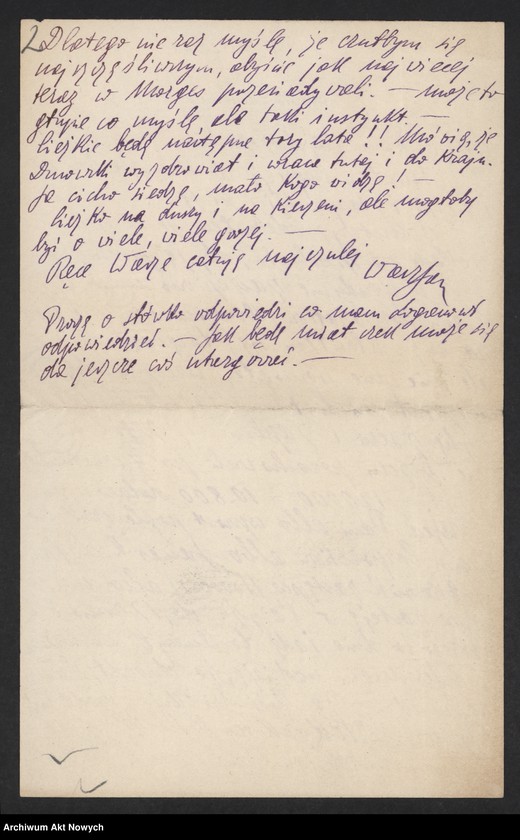 2 Dlatego nie raz myślę, że czułbym się
najszczęśliwszym, abyście jak najwięcej
teraz w Morges przesiadywali. — Może to
głupie co myślę ale taki instynkt —
Ciężkie będą następne trzy lata!! Mówią, że
Dmowski wyzdrowiał i wraca tutaj i do kraju.
Ja cicho siedzę, mało kogo widzę!
Ciężko na duszy i na kieszeni, ale mogłoby
być o wiele, wiele gorzej. —
Ręce Wasze całuję najczulej
Proszę o słówko odpowiedzi co mam
odpowiedzieć. — Jak będę miał czek może się
da jeszcze coś utargować. —
Archiwum Akt Nowych